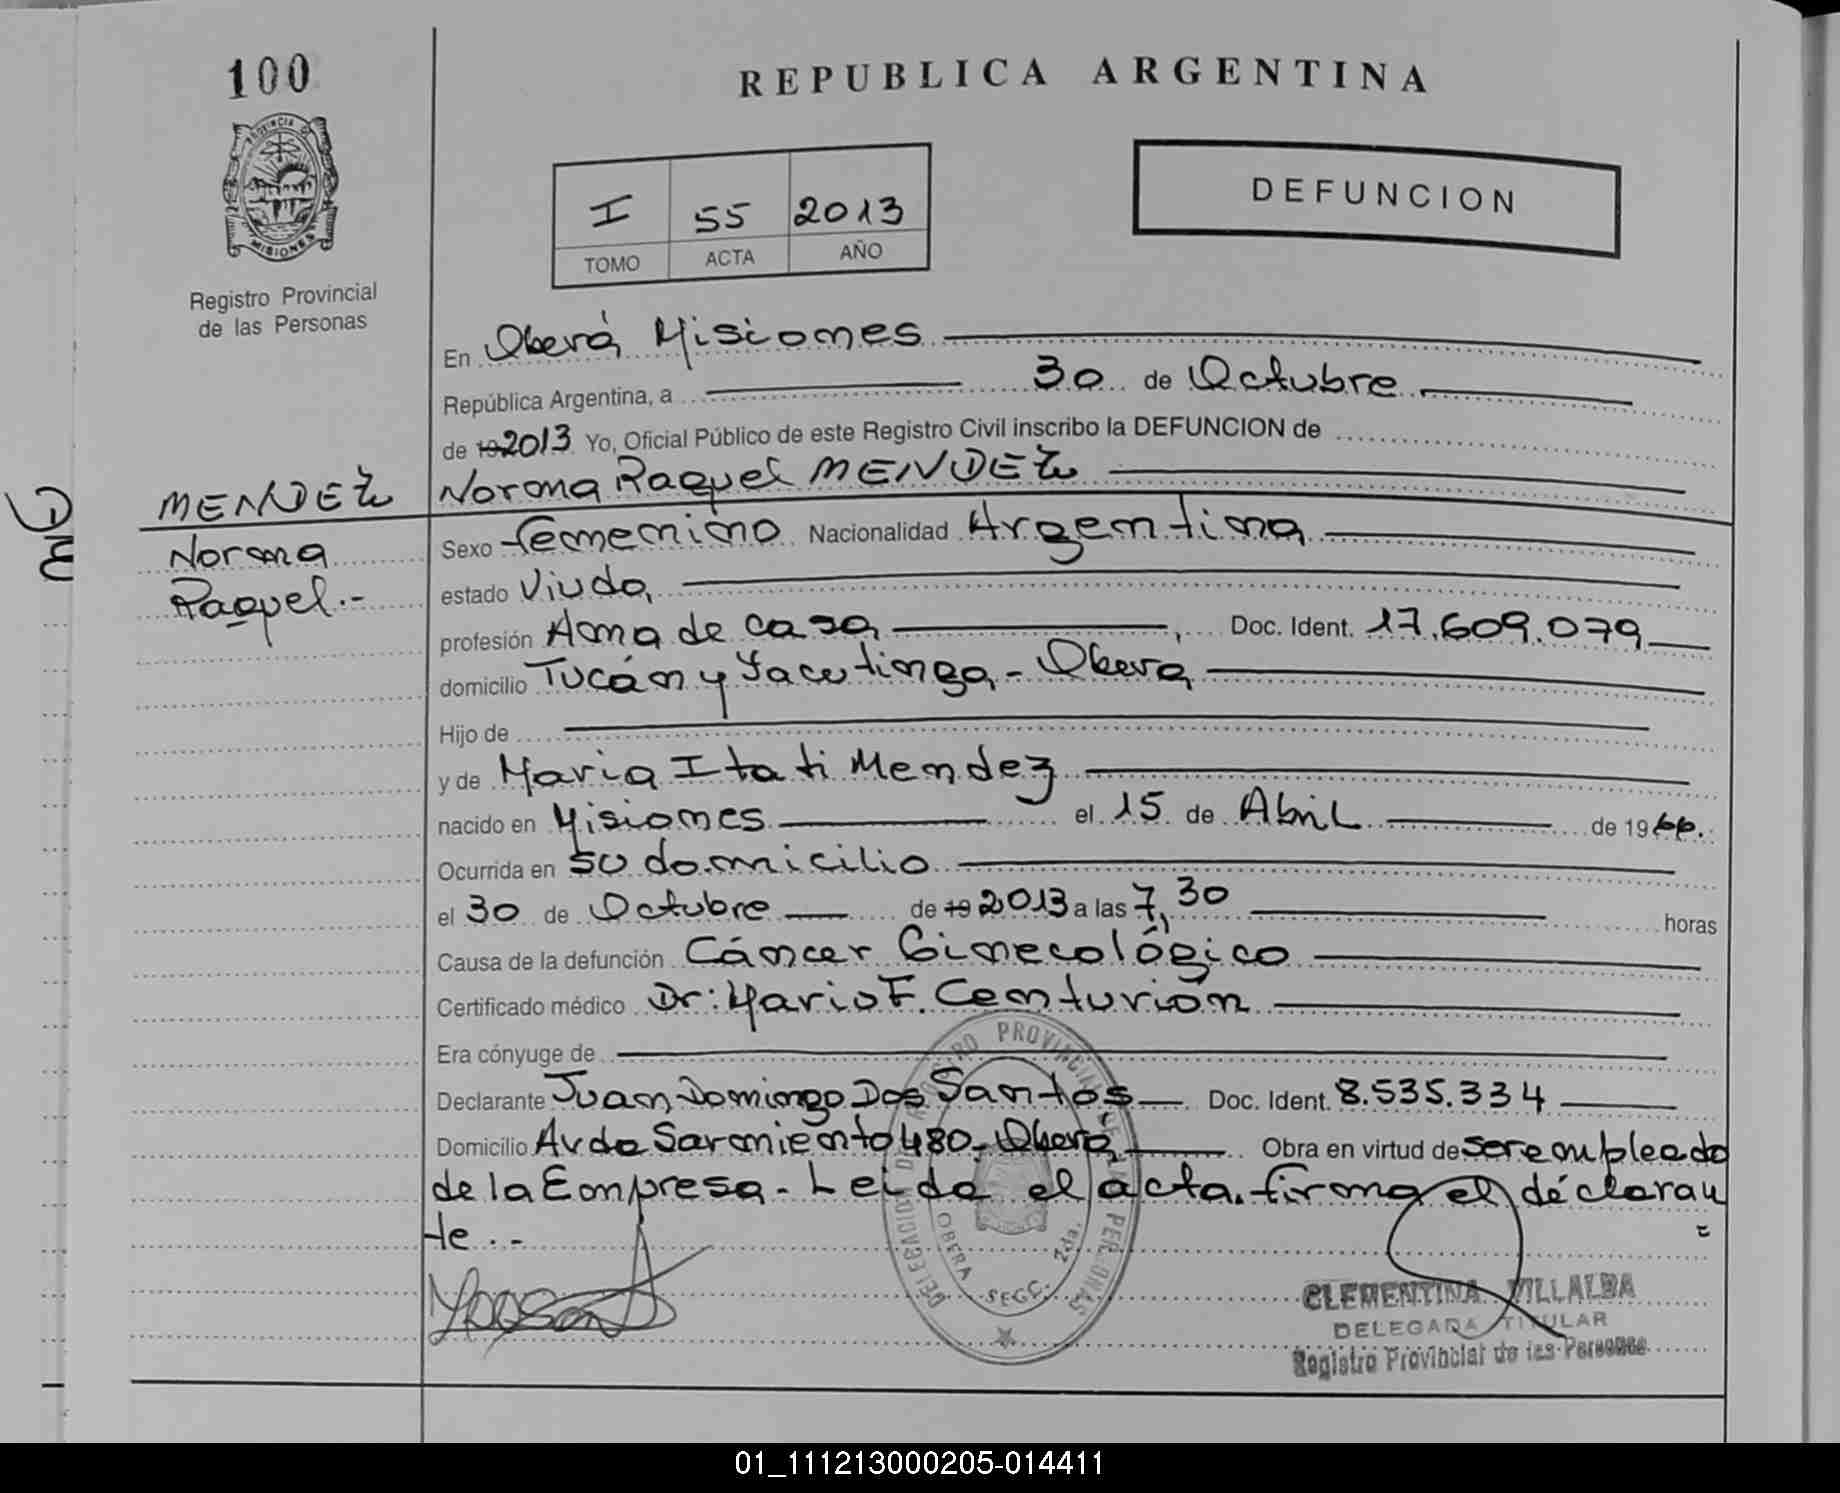 100
REPUBLICA ARGENTINA
PROVINCIA D
MISIONES
Registro Provincial
de las Personas
I 55 2013
TOMO ACTA AÑO
DEFUNCION
En Oberá Misiones
República Argentina, a 30 de Octubre
de 19 2013 Yo, Oficial Público de este Registro Civil inscribo la DEFUNCION de
MENDEZ Norma Raquel MENDEZ
Norma
Raquel.-
Sexo femenino Nacionalidad Argentina
estado Viuda,
profesión Ama de casa, Doc. Ident. 17.609.079
domicilio Tucán y Yacutinga - Oberá
Hijo de
y de Maria Itati Mendez
nacido en Misiones el 15 de Abril de 1966.
Ocurrida en su domicilio
el 30 de Octubre de 19 2013 a las 7,30 horas
Causa de la defunción Cáncer Ginecológico
Certificado médico Dr: Mario F. Centurión
Era cónyuge de
Declarante Juan Domingo Dos Santos Doc. Ident. 8.535.334
Domicilio Avda Sarmiento 480 - Oberá Obra en virtud de ser empleado
de la Empresa - Leida el acta, firma el declaran
te . -
DELEGACION DE REGISTRO PROVINCIAL DE LAS PERSONAS
OBERA SECC. 2da.
CLEMENTINA VILLALBA
DELEGADA TITULAR
Registro Provincial de las Personas
01_111213000205-014411